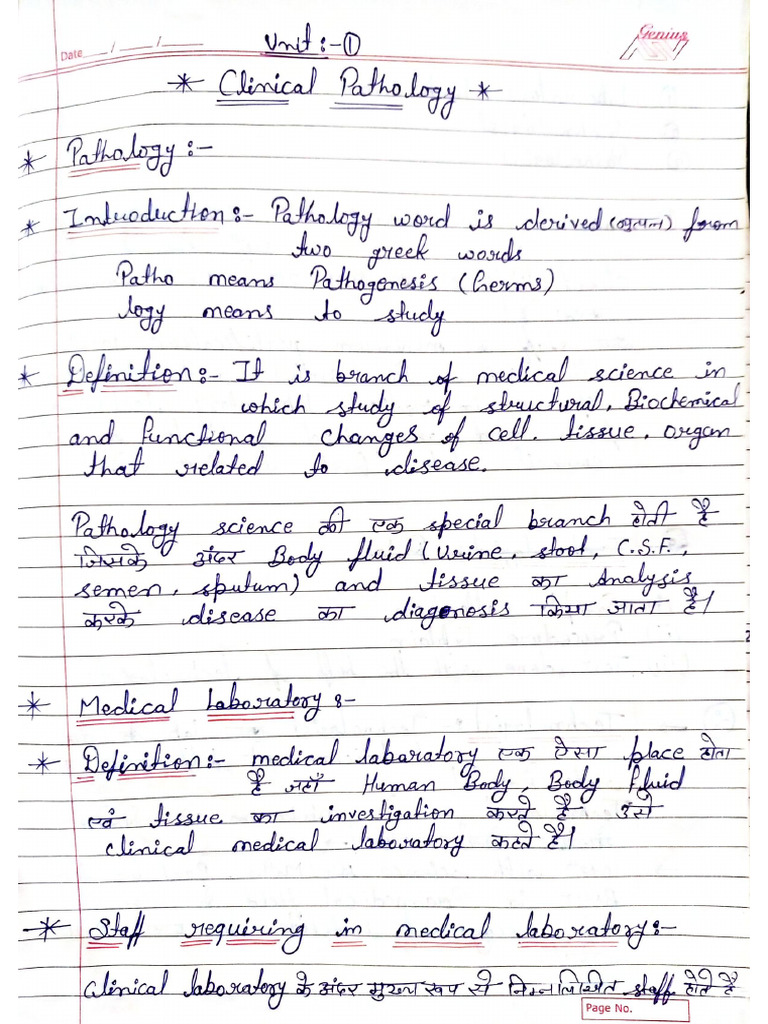 Unit :- ①
Genius
Date ___/___/___
* Clinical Pathology *
* Pathology :-
* Introduction :- Pathology word is derived (उत्पन्न) from
two greek words
Patho means Pathogenesis (Germs)
logy means to study
* Definition :- It is branch of medical science in
which study of structural, Biochemical
and functional changes of cell, tissue, organ
that related to disease.
Pathology science की एक special branch होती है
जिसके अंदर Body fluid (Urine, stool, C.S.F.,
semen, sputum) and tissue का Analysis
करके disease का diagenosis किया जाता है।
* Medical Laboratory :-
* Definition :- medical labaratory एक ऐसा place होता
है जहाँ Human Body, Body fluid
एवं tissue का investigation करते है उसे
clinical medical laboratory कहते है।
* Staff requiring in medical laboratory :-
Clinical laboratory के अंदर मुख्य रूप से निम्नलिखित staff होते है
Page No.